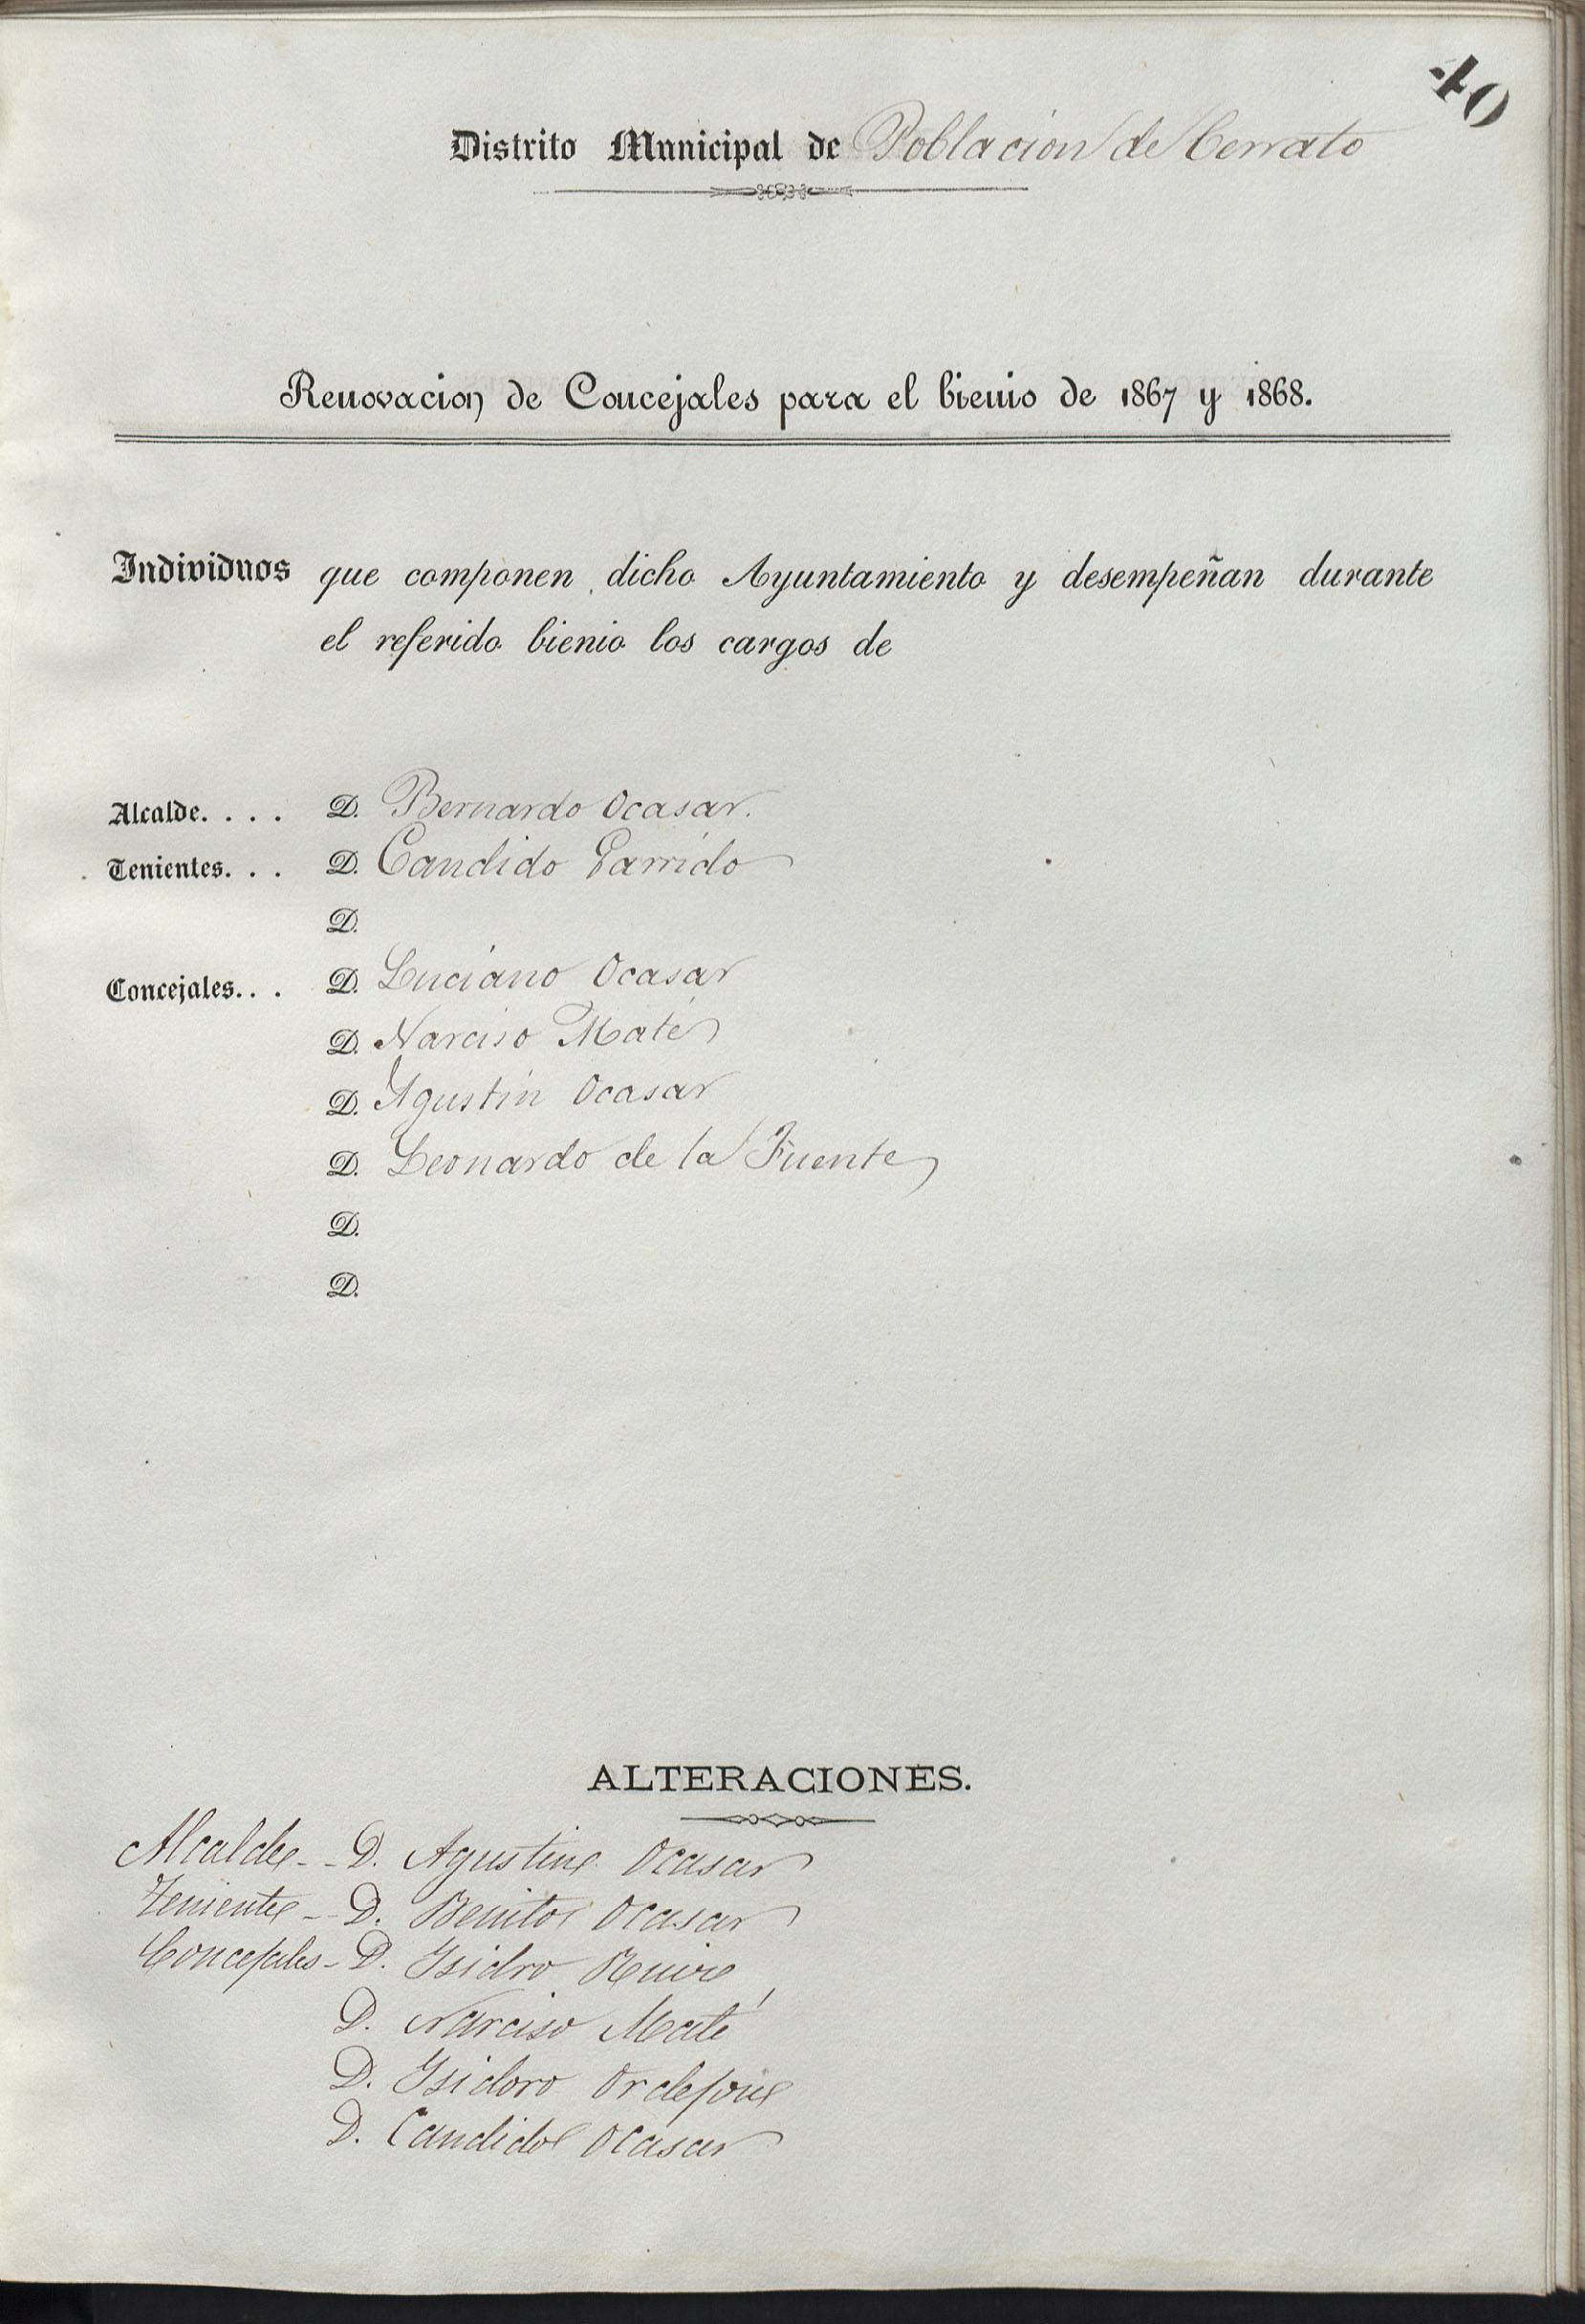 40
Distrito Municipal de Poblacion de Cerrato
Renovacion de Concejales para el bienio de 1867 y 1868.
Individuos que componen dicho Ayuntamiento y desempeñan durante
el referido bienio los cargos de
Alcalde. . . . D. Bernardo Ocasar.
Tenientes. . . D. Candido Garrido
D.
Concejales. . . D. Luciano Ocasar
D. Narciso Maté
D. Agustin Ocasar
D. Leonardo de la Fuente
D.
D.
ALTERACIONES.
Alcalde - - D. Agustin Ocasar
Teniente - - D. Benito Ocasar
Concejales - D. Isidro
D. Narciso Maté
D. Isidoro
D. Candido Ocasar